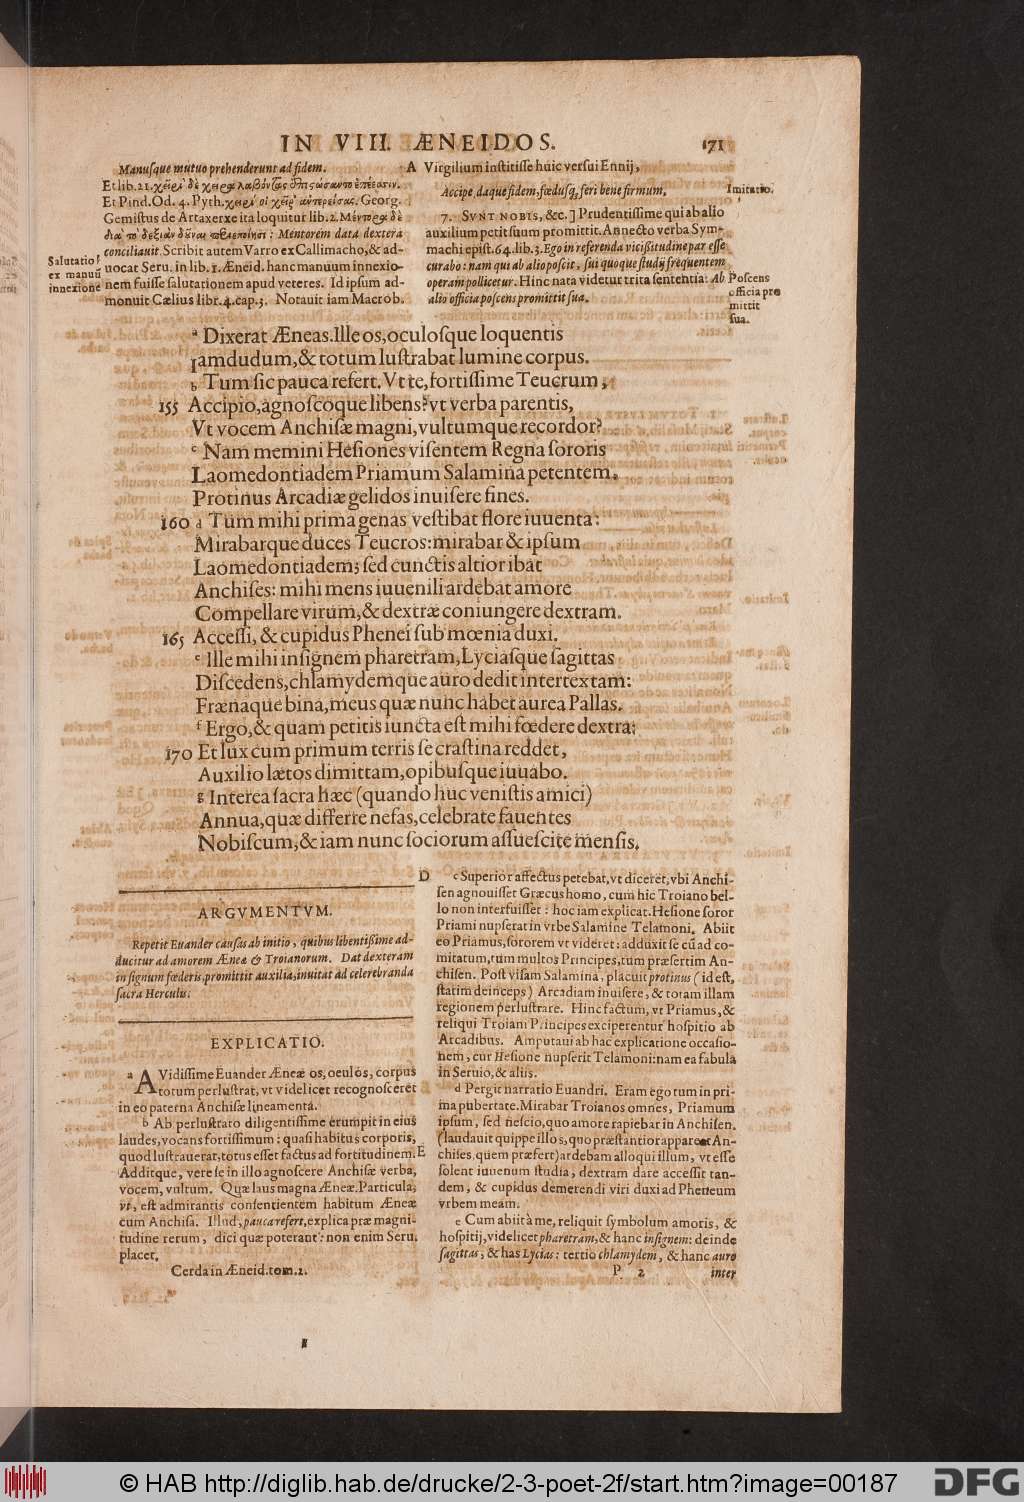 IN VIII. ÆNEIDOS. 171
Manusque mutuo prehenderunt ad fidem.
Et lib. 21. χειρὶ δὲ χεῖρα
Et Pind. Od. 4. Pyth. χειρὶ οἱ χεῖρ' ἀντερείσας. Georg.
Gemistus de Artaxerxe ita loquitur lib. 2. Μέντορα δὲ
διὰ τὸ δεξιὰν δοῦναι : Mentorem data dextera
conciliauit. Scribit autem Varro ex Callimacho, & ad-
uocat Seru. in lib. 1. Æneid. hanc manuum innexio-
nem fuisse salutationem apud veteres. Id ipsum ad-
monuit Cælius libr. 4. cap. 3. Notauit iam Macrob.
Salutatio
ex manuũ
innexione
A Virgilium institisse huic versui Ennij,
Accipe, daque fidem, fœdusq; feri bene firmum.
7. SVNT NOBIS, &c. ] Prudentissime qui ab alio
auxilium petit suum promittit. Annecto verba Sym-
machi epist. 64. lib. 3. Ego in referenda vicissitudine par esse
curabo: nam qui ab alio poscit, sui quoque studij frequentem
operam pollicetur. Hinc nata videtur trita sententia: Ab
alio officia poscens promittit sua.
Imitatio.
Poscens
officia pro
mittit
sua.
a Dixerat Æneas. Ille os, oculosque loquentis
Iamdudum, & totum lustrabat lumine corpus.
b Tum sic pauca refert. Vt te, fortissime Teucrum,
155 Accipio, agnoscoque libens? vt verba parentis,
Vt vocem Anchisæ magni, vultumque recordor?
c Nam memini Hesiones visentem Regna sororis
Laomedontiadem Priamum Salamina petentem,
Protinus Arcadiæ gelidos inuisere fines.
160 d Tum mihi prima genas vestibat flore iuuenta:
Mirabarque duces Teucros: mirabar & ipsum
Laomedontiadem; sed cunctis altior ibat
Anchises: mihi mens iuuenili ardebat amore
Compellare virum, & dextræ coniungere dextram.
165 Accessi, & cupidus Phenei sub mœnia duxi.
e Ille mihi insignem pharetram, Lyciasque sagittas
Discedens, chlamydemque auro dedit intertextam:
Frænaque bina, meus quæ nunc habet aurea Pallas.
f Ergo, & quam petitis iuncta est mihi fœdere dextra;
170 Et lux cum primum terris se crastina reddet,
Auxilio lætos dimittam, opibusque iuuabo.
g Interea sacra hæc (quando huc venistis amici)
Annua, quæ differre nefas, celebrate fauentes
Nobiscum, & iam nunc sociorum assuescite mensis.
ARGVMENTVM.
Repetit Euander causas ab initio, quibus libentissime ad-
ducitur ad amorem Æneæ & Troianorum. Dat dexteram
in signum fœderis, promittit auxilia, inuitat ad celebranda
sacra Herculis.
EXPLICATIO.
a AVidissime Euander Æneæ os, oculos, corpus
totum perlustrat, vt videlicet recognosceret
in eo paterna Anchisæ lineamenta.
b Ab perlustrato diligentissime erumpit in eius
laudes, vocans fortissimum: quasi habitus corporis,
quod lustrauerat, totus esset factus ad fortitudinem.
Additque, vere se in illo agnoscere Anchisæ verba,
vocem, vultum. Quæ laus magna Æneæ. Particula,
vt, est admirantis consentientem habitum Æneæ
cum Anchisa. Illud, pauca refert, explica præ magni-
tudine rerum, dici quæ poterant: non enim Seru.
placet.
Cerda in Æneid. tom. 2.
D c Superior affectus petebat, vt diceret, vbi Anchi-
sen agnouisset Græcus homo, cum hic Troiano bel-
lo non interfuisset: hoc iam explicat. Hesione soror
Priami nupserat in vrbe Salamine Telamoni. Abiit
eo Priamus, sororem vt videret: adduxit secũ ad co-
mitatum, tum multos Principes, tum præsertim An-
chisen. Post visam Salamina, placuit protinus ( id est,
statim deinceps) Arcadiam inuisere, & totam illam
regionem perlustrare. Hinc factum, vt Priamus, &
reliqui Troiani Principes exciperentur hospitio ab
Arcadibus. Amputaui ab hac explicatione occasio-
nem, cur Hesione nupserit Telamoni: nam ea fabula
in Seruio, & aliis.
d Pergit narratio Euandri. Eram ego tum in pri-
ma pubertate. Mirabar Troianos omnes, Priamum
ipsum, sed nescio, quo amore rapiebar in Anchisen.
(laudauit quippe illos, quo præstantior appareat An-
E chises, quem præfert) ardebam alloqui illum, vt esse
solent iuuenum studia, dextram dare accessit tan-
dem, & cupidus demerendi viri duxi ad Pheneum
vrbem meam.
e Cum abiit à me, reliquit symbolum amoris, &
hospitij, videlicet pharetram, & hanc insignem: deinde
sagittas, & has Lycias: tertio chlamydem, & hanc auro
P 2 inter
© HAB http://diglib.hab.de/drucke/2-3-poet-2f/start.htm?image=00187
DFG